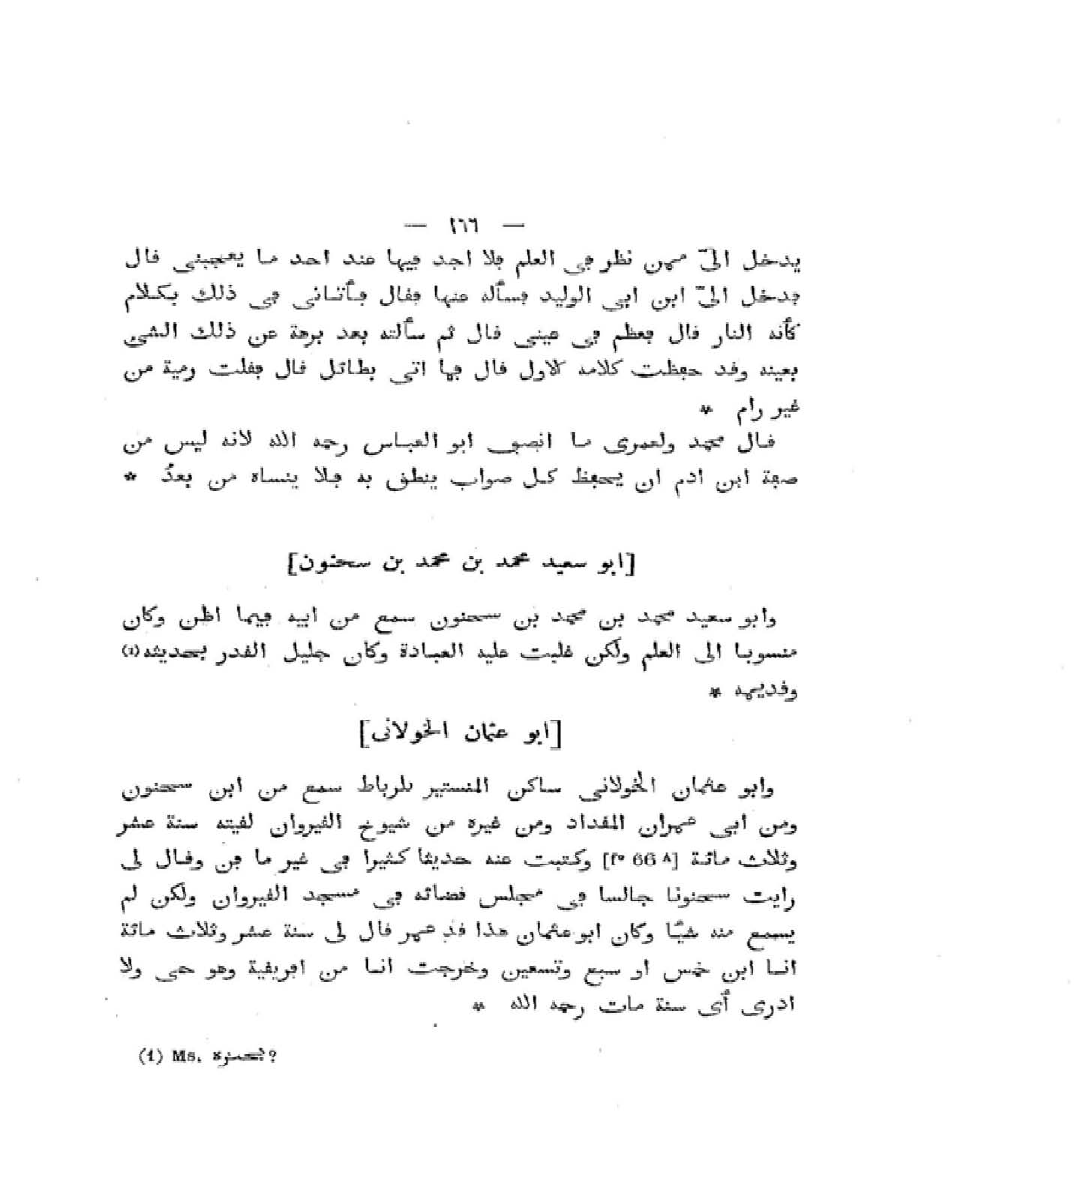 — ١٦٦ —
يدخل الىّ ممن نظر في العلم فلا اجد فيها عند احد ما يعجبنى قال
فدخل الىّ ابن ابى الوليد فسأله عنها فقال فأتانى في ذلك بكلام
كأنه النار قال فعظم في عينى قال ثم سألته بعد برهة عن ذلك الشى
بعينه وقد حفظت كلامه كلاول قال فما اتى بطائل قال فقلت رمية من
غير رام *
قال محمد ولعمرى ما انصف ابو العباس رحمه الله لانه ليس من
صفة ابن ادم ان يحفظ كل صواب ينطق به فلا ينساه من بعدُ *
[ابو سعيد محمد بن محمد بن سحنون]
وابو سعيد محمد بن محمد بن سحنون سمع من ابيه فيما اظن وكان
منسوبا الى العلم ولكن غلبت عليه العبادة وكان جليل القدر بحديثه(1)
وقديمه *
[ابو عثمان الخولانى]
وابو عثمان الخولانى ساكن المنستير بلرباط سمع من ابن سحنون
ومن ابى عمران المقداد ومن غيره من شيوخ القيروان لقيته سنة عشر
وثلاث مائة [f° 66 A] وكتبت عنه حديثا كثيرا في غير ما فن وقال لى
رايت سحنونا جالسا في مجلس قضائه في مسجد القيروان ولكن لم
يسمع منه شيًا وكان ابو عثمان هذا قد عمر قال لى سنة عشر وثلاث مائة
انا ابن خمس او سبع وتسعين وخرجت انا من افريقية وهو حى ولا
ادرى أى سنة مات رحمه الله *
(1) Ms. ?